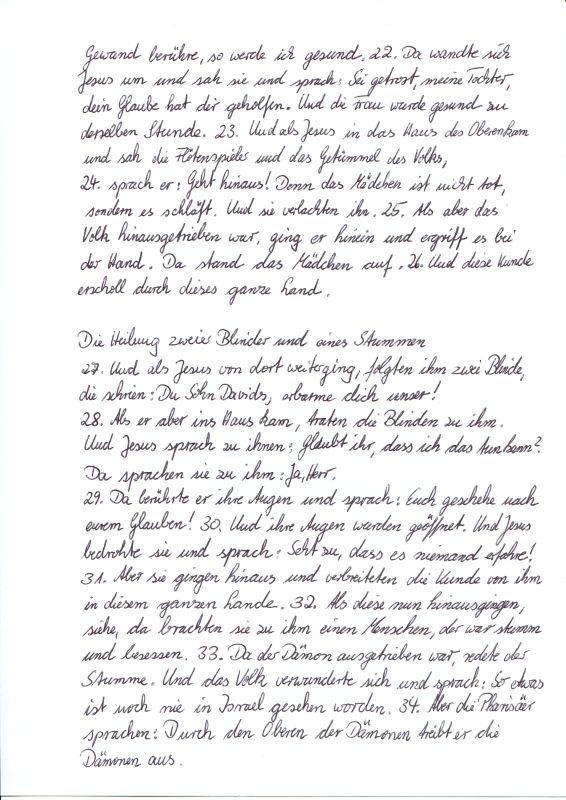 Gewand berühre, so werde ich gesund. 22. Da wandte sich
Jesus um und sah sie und sprach: Sei getrost, meine Tochter,
dein Glaube hat dir geholfen. Und die Frau wurde gesund zu
derselben Stunde. 23. Und als Jesus in das Haus des Oberen kam
und sah die Flötenspieler und das Getümmel des Volks,
24. sprach er: Geht hinaus! Denn das Mädchen ist nicht tot,
sondern es schläft. Und sie verlachten ihn. 25. Als aber das
Volk hinausgetrieben war, ging er hinein und ergriff es bei
der Hand. Da stand das Mädchen auf. 26. Und diese Kunde
erscholl durch dieses ganze Land.
Die Heilung zweier Blinder und eines Stummen
27. Und als Jesus von dort weiterging, folgten ihm zwei Blinde,
die schrien: Du Sohn Davids, erbarme dich unser!
28. Als er aber ins Haus kam, traten die Blinden zu ihm.
Und Jesus sprach zu ihnen: Glaubt ihr, dass ich das tun kann?
Da sprachen sie zu ihm: Ja, Herr.
29. Da berührte er ihre Augen und sprach: Euch geschehe nach
eurem Glauben! 30. Und ihre Augen wurden geöffnet. Und Jesus
bedrohte sie und sprach: Seht zu, dass es niemand erfahre!
31. Aber sie gingen hinaus und verbreiteten die Kunde von ihm
in diesem ganzen Lande. 32. Als diese nun hinausgingen,
siehe, da brachten sie zu ihm einen Menschen, der war stumm
und besessen. 33. Da der Dämon ausgetrieben war, redete der
Stumme. Und das Volk verwunderte sich und sprach: So etwas
ist noch nie in Israel gesehen worden. 34. Aber die Pharisäer
sprachen: Durch den Oberen der Dämonen treibt er die
Dämonen aus.